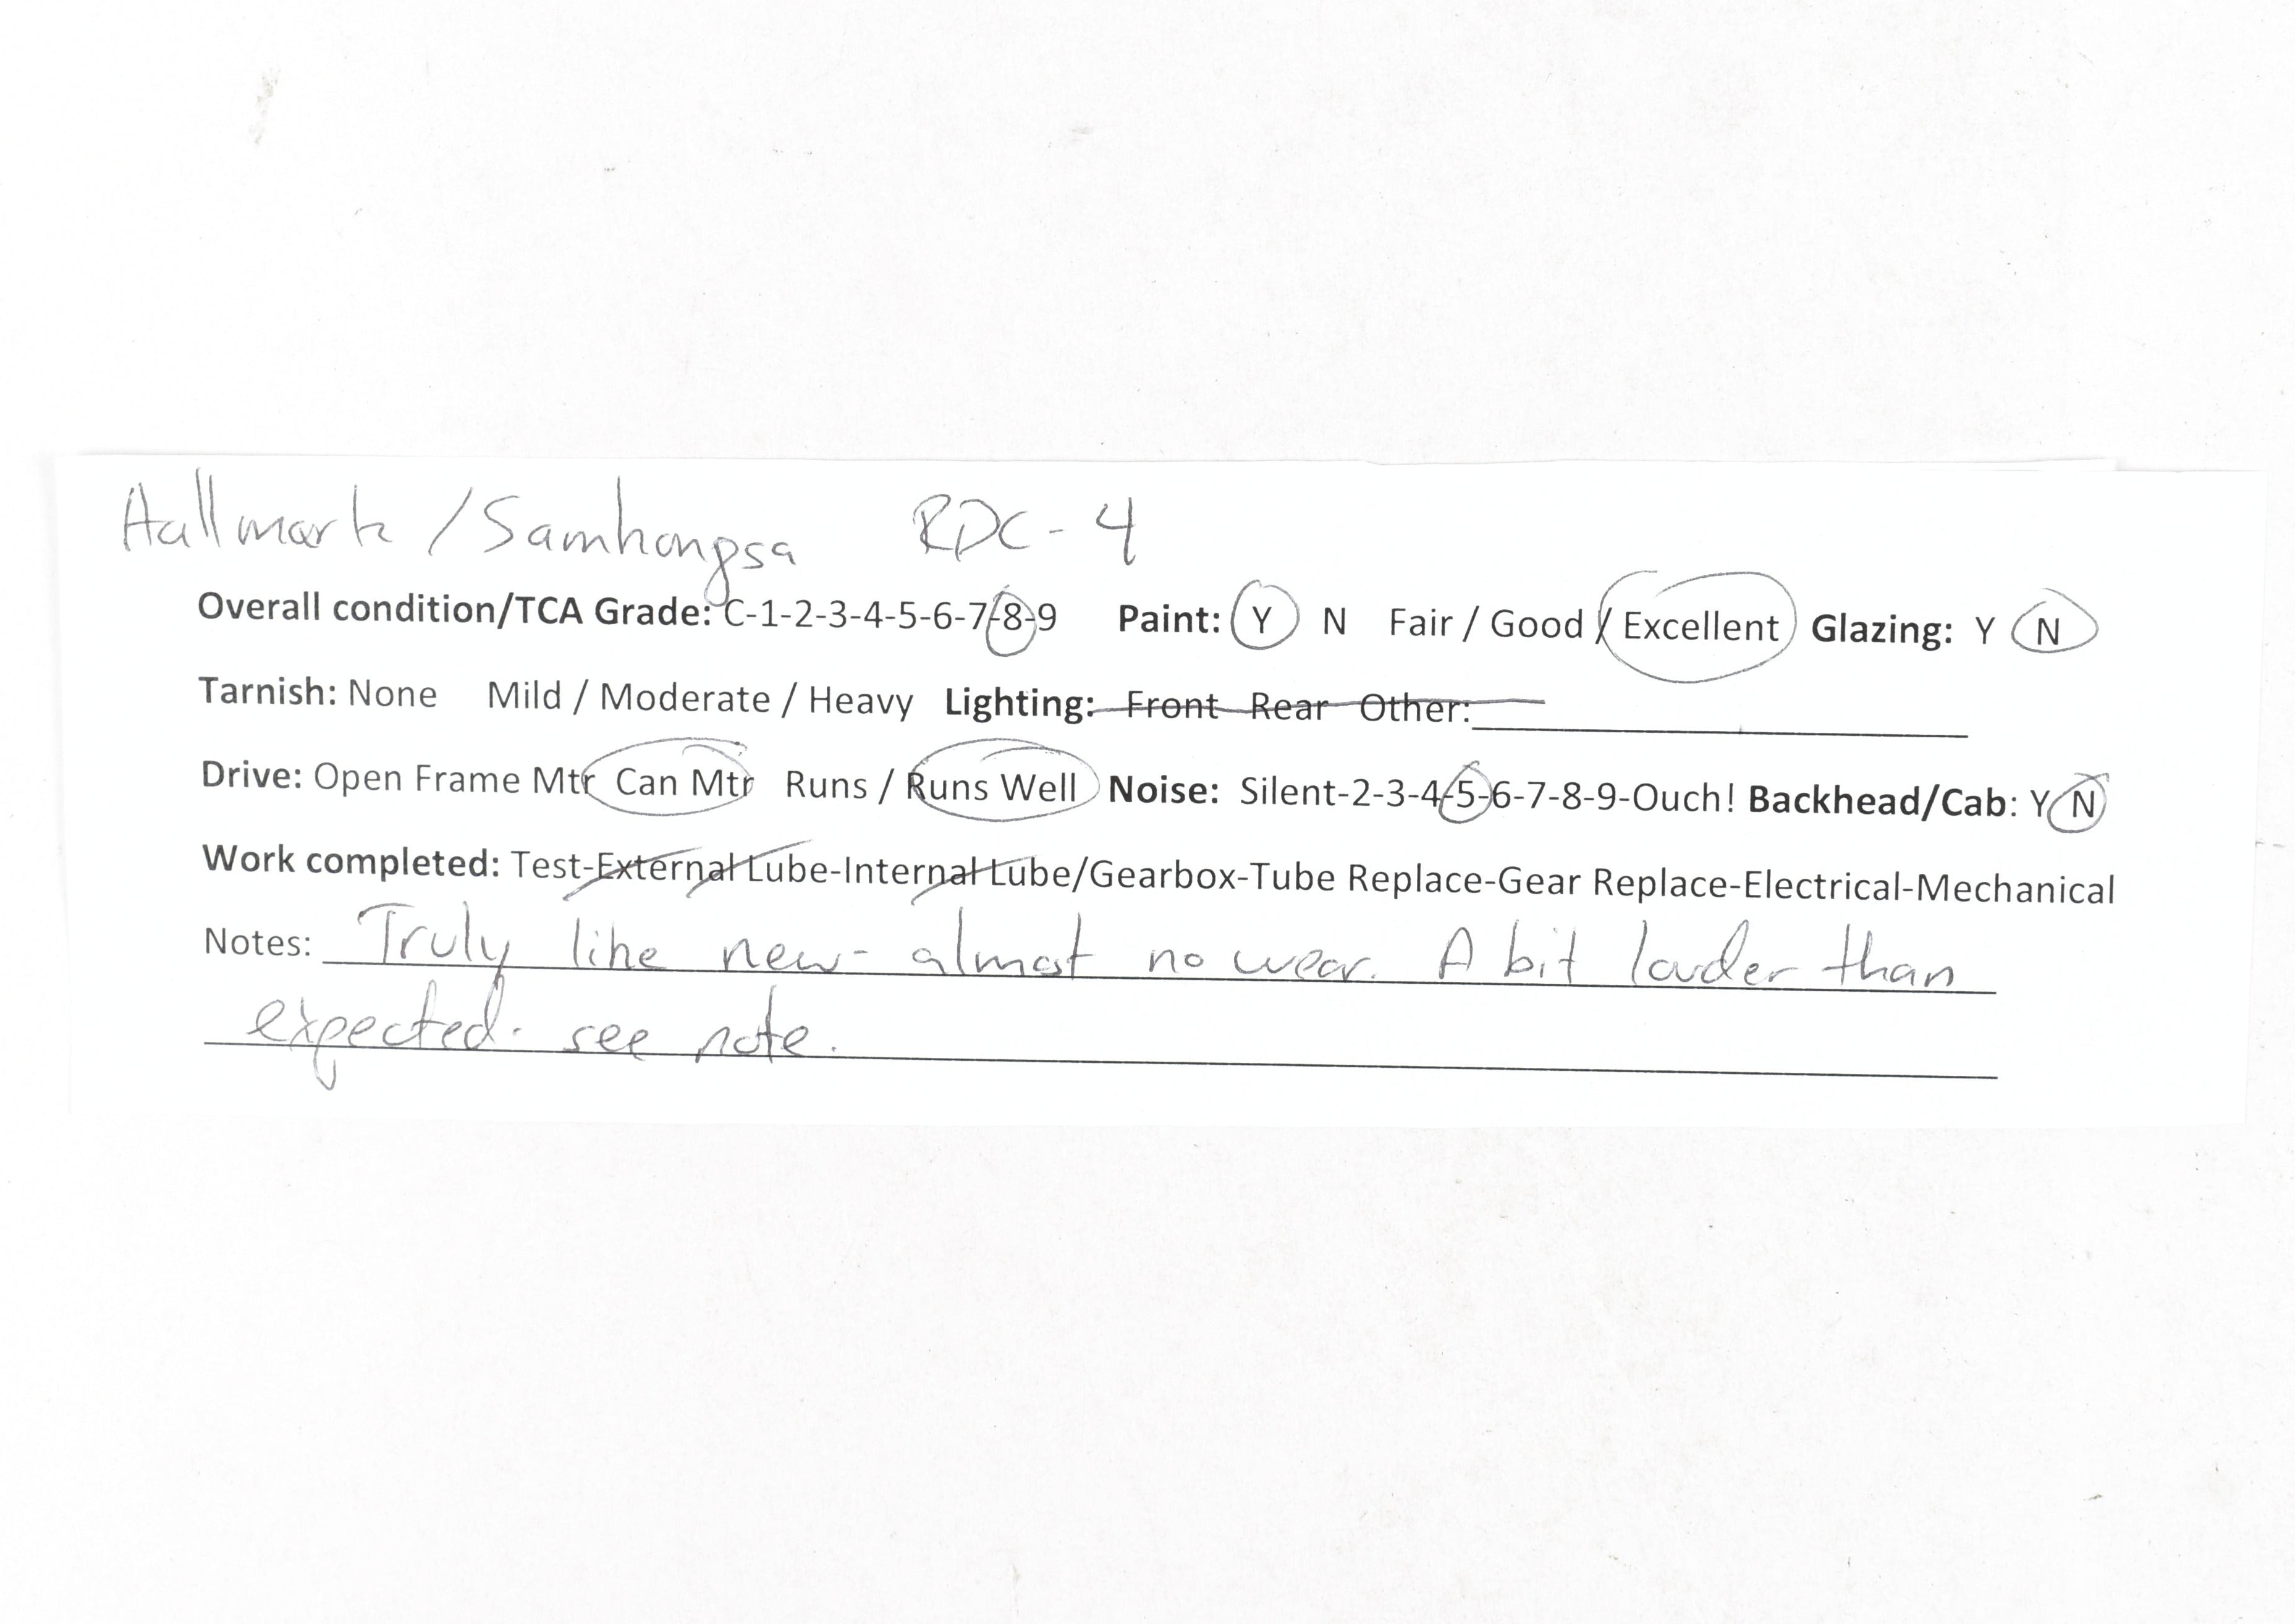 Hallmark / Samhongsa RDC-4
Overall condition/TCA Grade: C-1-2-3-4-5-6-7-8-9 Paint: Y N Fair / Good / Excellent Glazing: Y N
Tarnish: None Mild / Moderate / Heavy Lighting: Front Rear Other:
Drive: Open Frame Mtr Can Mtr Runs / Runs Well Noise: Silent-2-3-4-5-6-7-8-9-Ouch! Backhead/Cab: Y N
Work completed: Test-External Lube-Internal Lube/Gearbox-Tube Replace-Gear Replace-Electrical-Mechanical
Notes: Truly like new- almost no wear. A bit louder than
expected. see note.